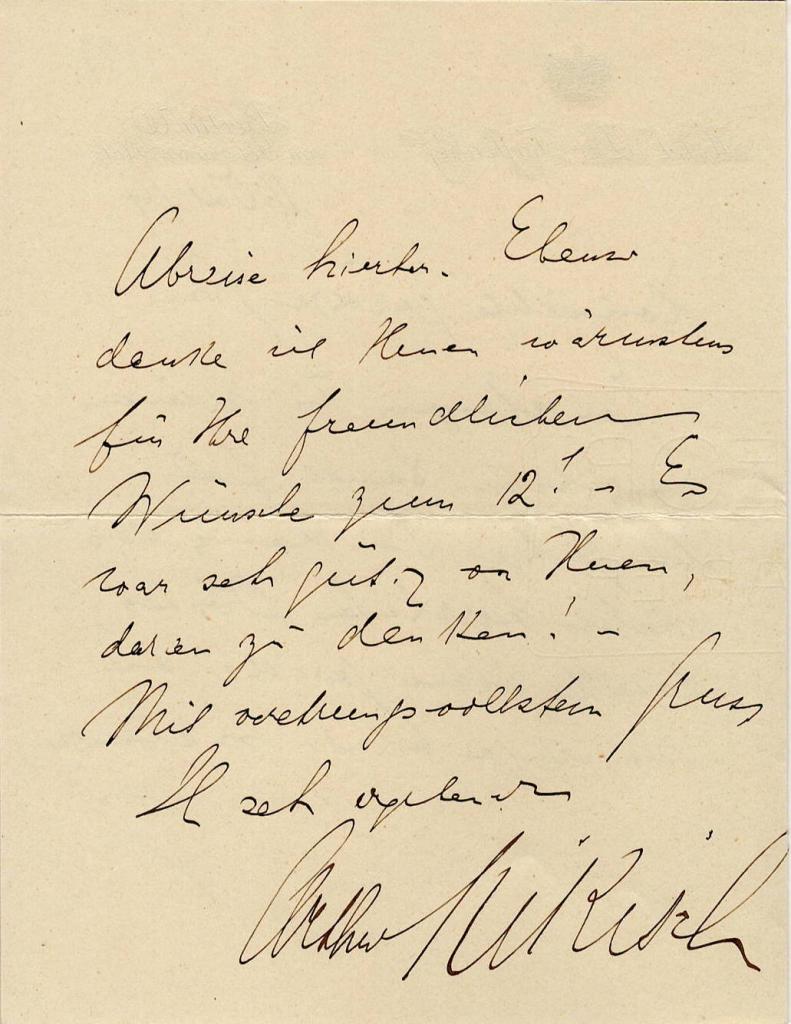 Abreise hierher. Ebenso
danke ich Ihnen wärmstens
für Ihre freundlichen
Wünsche zum 12! – Es
war sehr gütig von Ihnen,
daran zu denken! –
Mit verehrungsvollstem Gruss
Ihr sehr ergebener
Arthur Nikisch